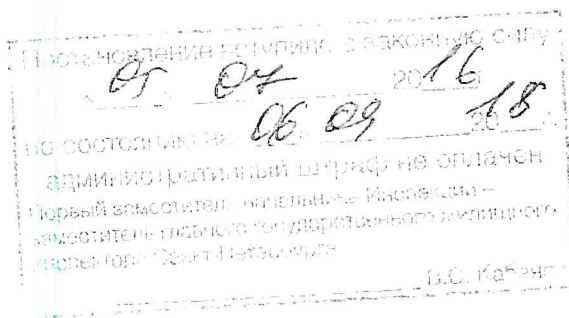 Постановление вступило в законную силу
05 07 2016 г.
по состоянию на 06 09 2018
административный штраф не оплачен
Первый заместитель начальника Инспекции –
заместитель главного государственного жилищного
инспектора Санкт-Петербурга